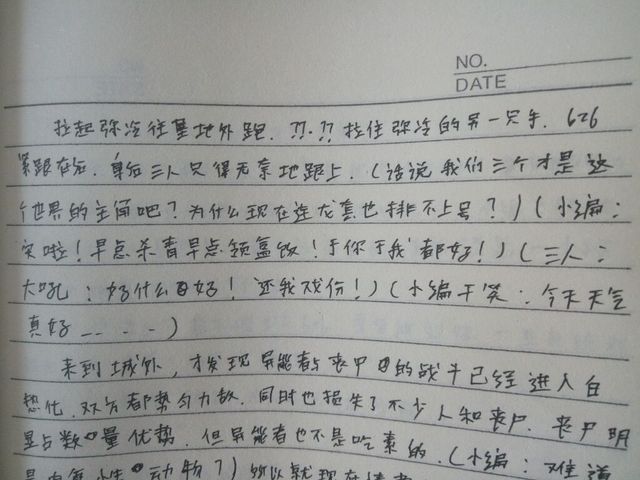 NO.
DATE
拉起弥冷往基地外跑. ??·?? 拉住弥冷的另一只手. 626
紧跟在后. 身后三人只得无奈地跟上. (话说我们三个才是这
个世界的主角吧?为什么现在连龙套也排不上号?)(小编:
哭啦!早点杀青早点领盒饭!于你于我都好!)(三人:
大吼:好什么好!还我戏份!)(小编干笑:今天天气
真好....)
来到城外,才发现异能者与丧尸的战斗已经进入白
热化,双方都势均力敌.同时也损失了不少人和丧尸.丧尸明
显占数量优势.但异能者也不是吃素的.(小编:难道
动物?)所以就现在